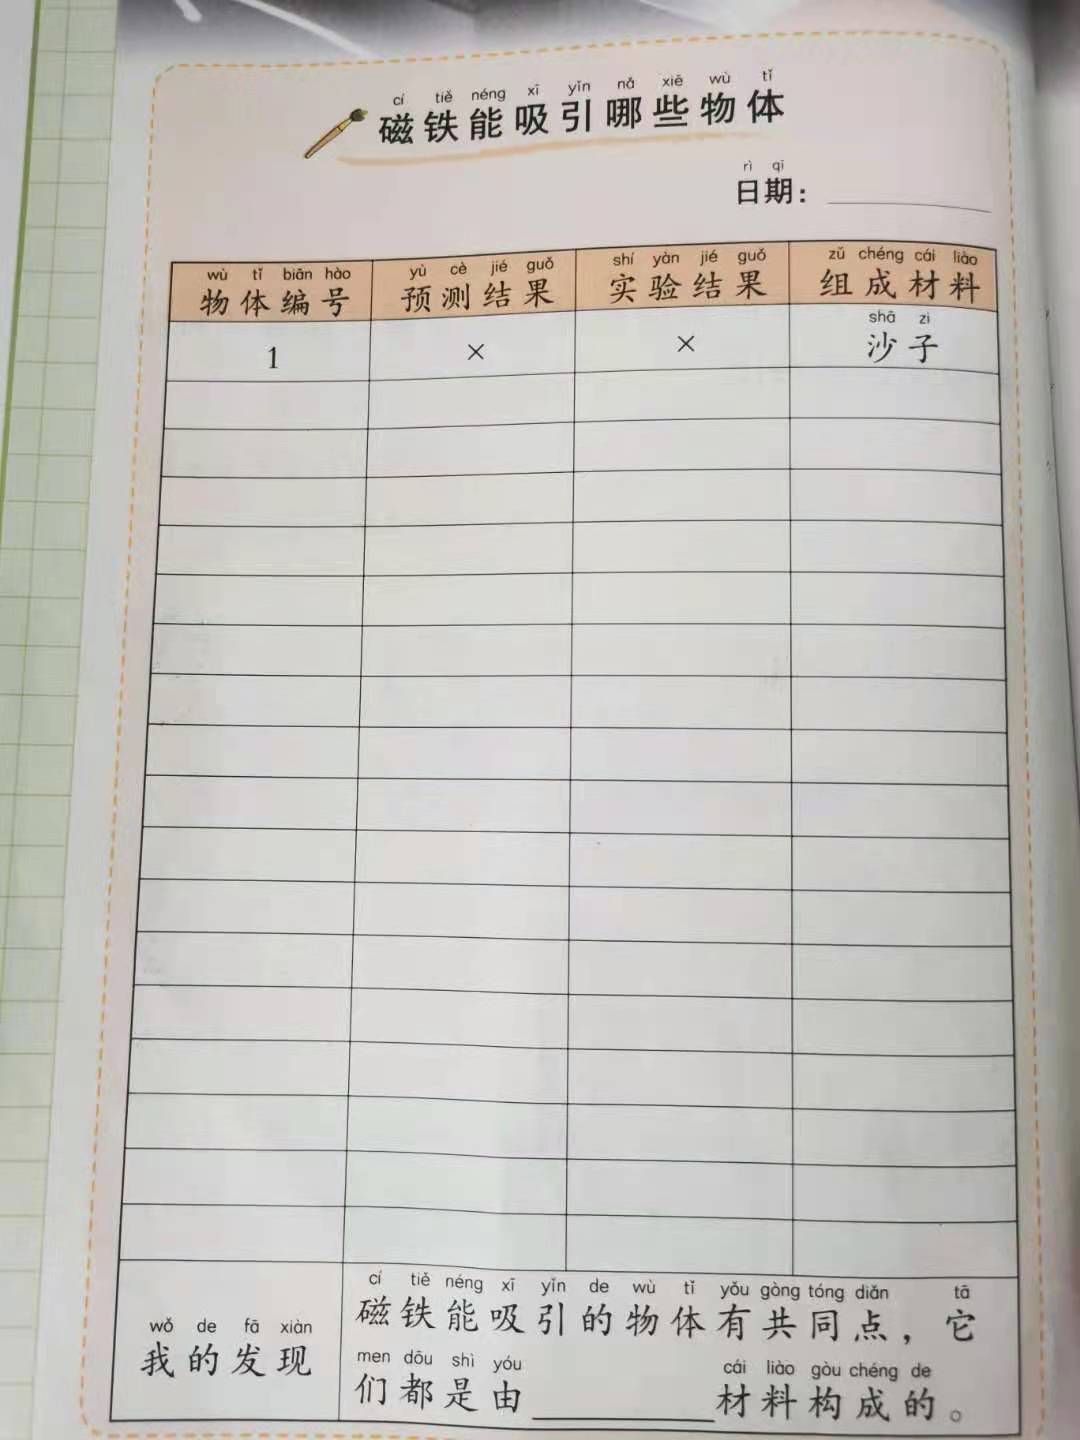 cí tiě néng xī yǐn nǎ xiē wù tǐ
磁铁能吸引哪些物体
rì qī
日期：
wù tǐ biān hào yù cè jié guǒ shí yàn jié guǒ zǔ chéng cái liào
物体编号 预测结果 实验结果 组成材料
shā zi
1 × × 沙子
cí tiě néng xī yǐn de wù tǐ yǒu gòng tóng diǎn tā
磁铁能吸引的物体有共同点，它
wǒ de fā xiàn
我的发现
men dōu shì yóu cái liào gòu chéng de
们都是由________材料构成的。